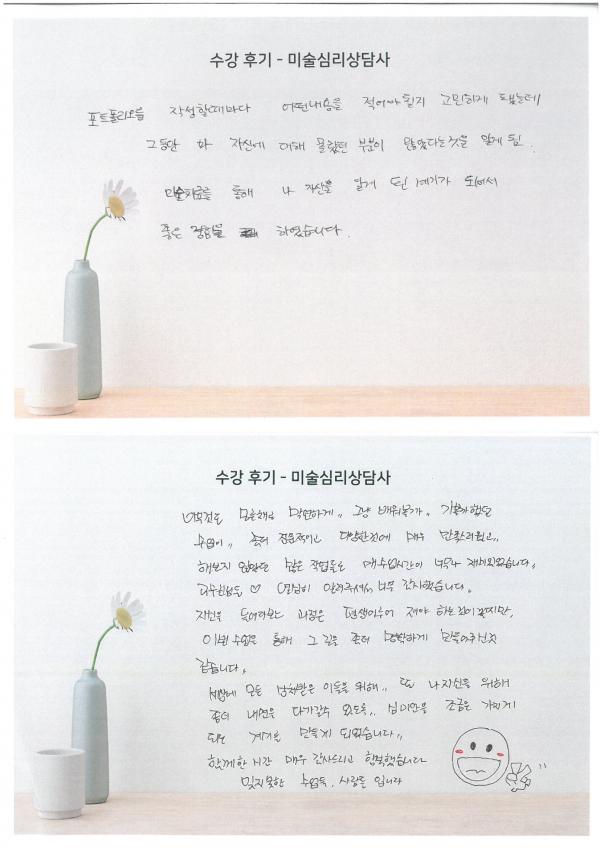 수강 후기 - 미술심리상담사
포트폴리오를 작성할때마다 어떤내용을 적어야될지 고민하게 됐는데
그동안 나 자신에 대해 몰랐던 부분이 많았다는것을 알게 됨.
미술치료를 통해 나 자신을 알게 된 계기가 되어서
좋은 경험을 하였습니다.
수강 후기 - 미술심리상담사
모른채로 막연하게,, 그냥 배워볼까.. 기본하였던
수업이,, 좀더 전문적이고 다양한것에 매우 만족스러웠고,,
해보지 않았던 많은 작업들로 매수업시간이 너무나 재미있었습니다,,
교수님들 ♡ 열심히 알려주셔서 너무 감사했습니다.
자신을 들여다보는 과정은 평생이루어 져야 하는것이겠지만,
이번 수업을 통해 그 길을 좀더 명확하게 만들어주신것
같습니다,
세상에 모든 상처받은 이들을 위해,, 또 나자신을 위해
좀더 내면을 다가갈수 있도록,, 심미안을 조금은 가지게
되는 계기를 만들게 되었습니다,,
함께한 시간 매우 감사드리고 행복했습니다
잊지못할 수업들, 사랑을 입니다